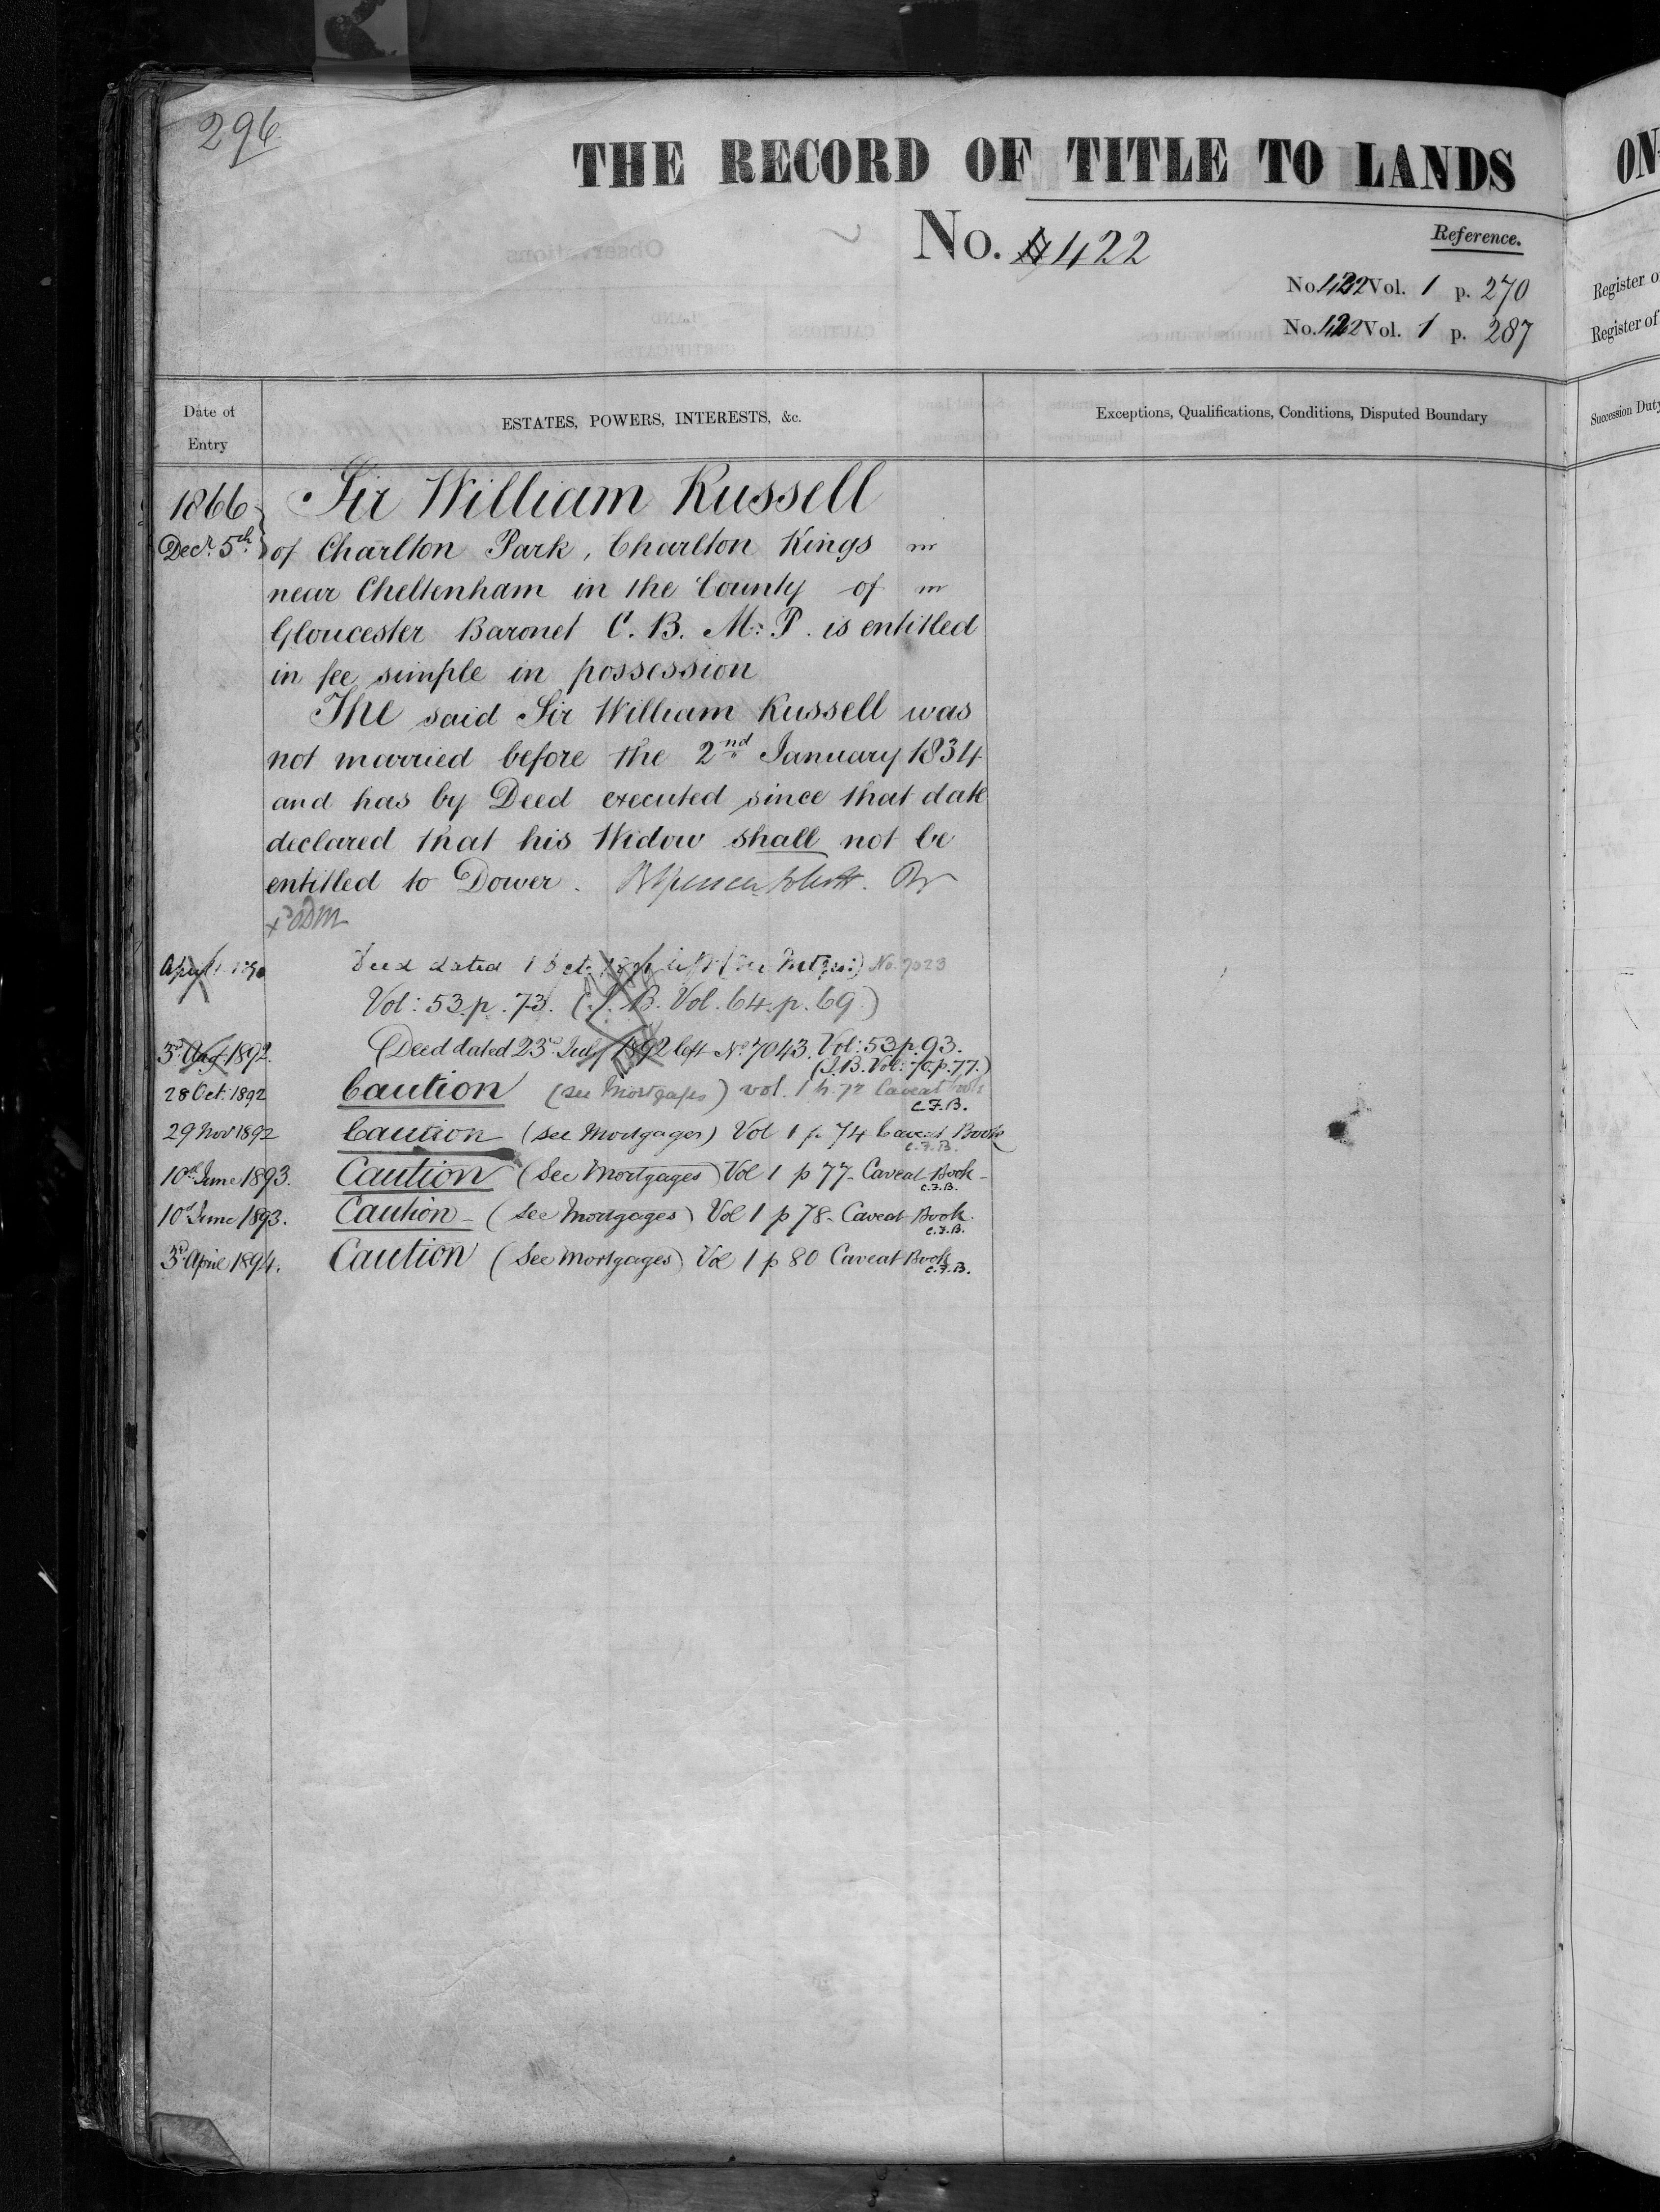 296
THE RECORD OF TITLE TO LANDS
No. 422
Reference.
No. 422 Vol. 1 p. 270
No. 422 Vol. 1 p. 287
Date of Entry
ESTATES, POWERS, INTERESTS, &c.
Exceptions, Qualifications, Conditions, Disputed Boundary
1866 Sir William Russell
Decr. 5th of Charlton Park, Charlton Kings
near Cheltenham in the County of
Gloucester Baronet C. B. M: P. is entitled
in fee simple in possession
The said Sir William Russell was
not married before the 2nd January 1834
and has by Deed executed since that date
declared that his Widow shall not be
entitled to Dower.
Deed dated 1 Oct. left No. 7023
Vol: 53. p. 73. (I. B. Vol. 64. p. 69.)
3rd Augt. 1892. Deed dated 23rd July 1892 left No. 7043. Vol: 53 p. 93.
(I. B. Vol: 70. p. 77.)
28 Oct: 1892 Caution (see Mortgages) vol. 1 p. 72 Caveat book
C.F.B.
29 Nov 1892 Caution (see Mortgages) Vol 1 p 74 Caveat Book
C.F.B.
10th June 1893. Caution (See Mortgages) Vol 1 p 77- Caveat Book-
C.F.B.
10th June 1893. Caution- (See Mortgages) Vol 1 p 78- Caveat Book.
C.F.B.
3rd April 1894. Caution (See Mortgages) Vol 1 p 80 Caveat Book
C.F.B.
ON
Register o
Register of
Succession Duty